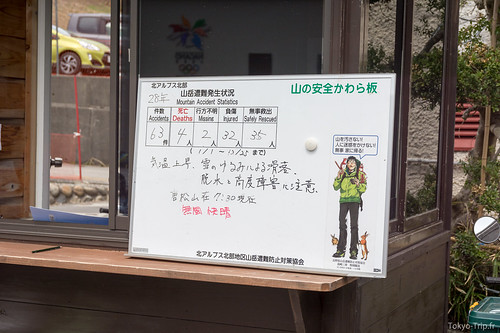 北アルプス北部
28年 山岳遭難発生状況
山の安全かわら板
Mountain Accident Statistics
件数 死亡 行方不明 負傷 無事救出
Accidents Deaths Missing Injured Safely Rescued
63件 4人 2人 32人 35人
まで)
気温上昇、雪のゆるみによる滑落、
脱水と高度障害に注意.
7:30現在
無風 快晴
山を汚さない!
人に迷惑をかけない!
無事 家に帰る!
北アルプス北部地区山岳遭難防止対策協会
Tokyo-Trip.fr